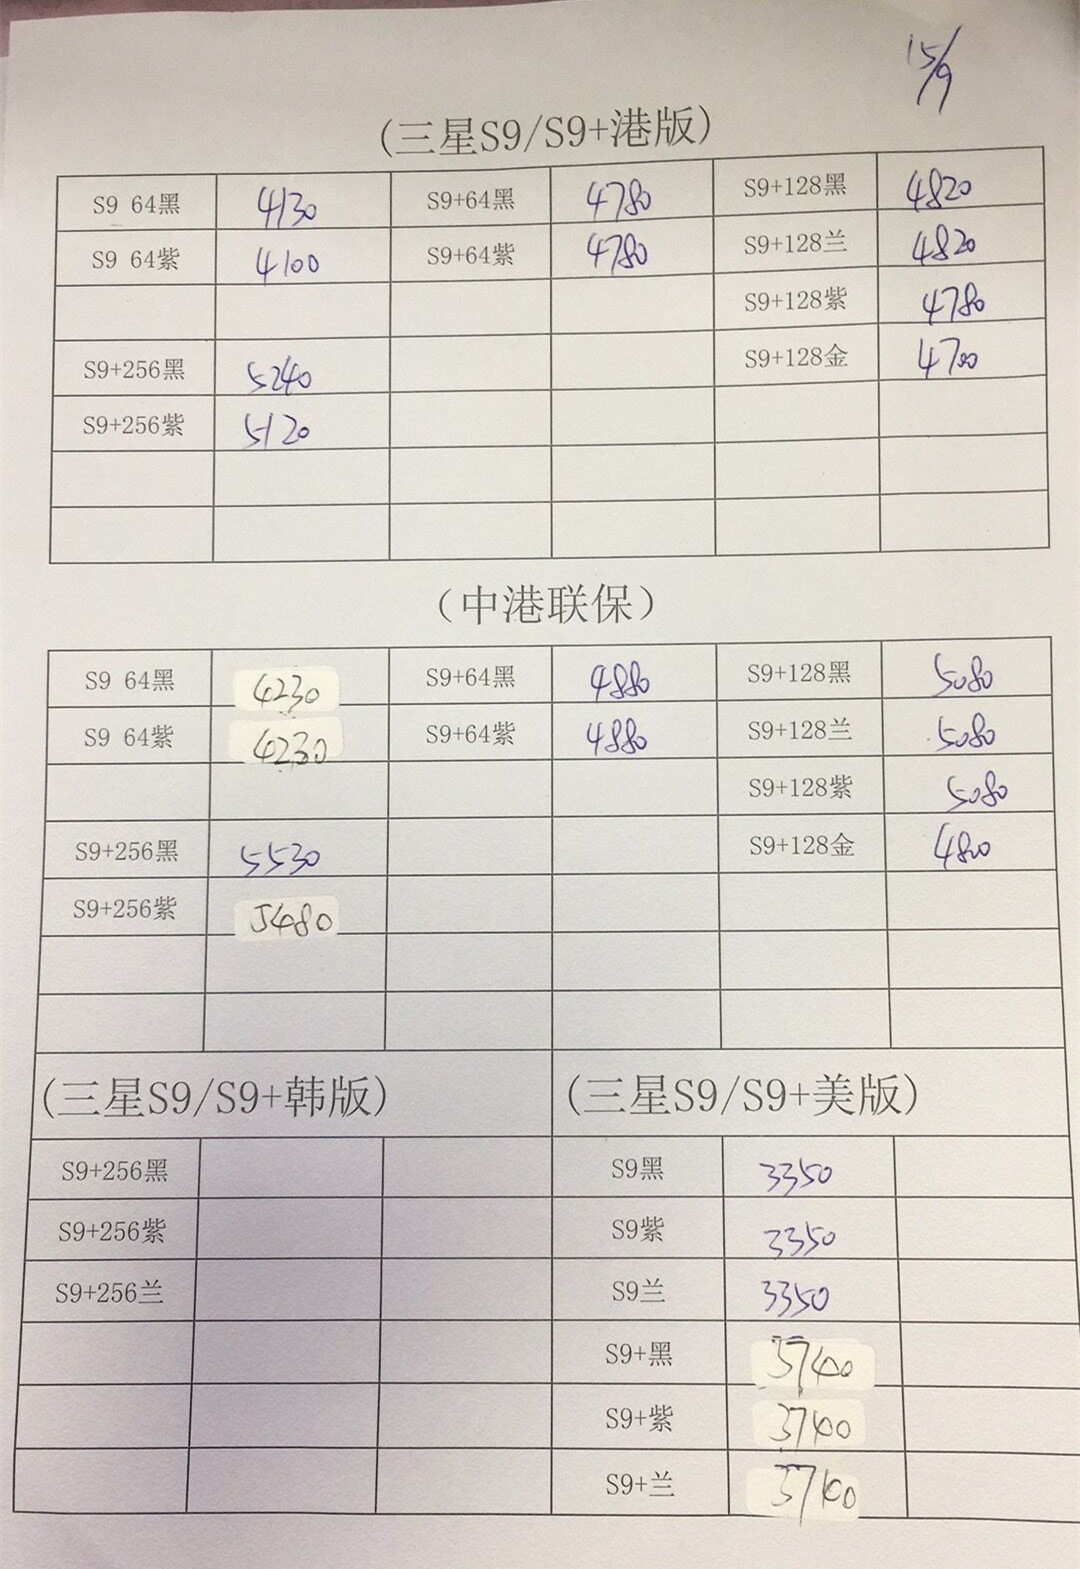 15/9
(三星S9/S9+港版)
S9 64黑 4130 S9+64黑 4780 S9+128黑 4820
S9 64紫 4100 S9+64紫 4780 S9+128兰 4820
S9+128紫 4780
S9+256黑 5240 S9+128金 4700
S9+256紫 5120
(中港联保)
S9 64黑 4230 S9+64黑 4880 S9+128黑 5080
S9 64紫 4230 S9+64紫 4880 S9+128兰 5080
S9+128紫 5080
S9+256黑 5530 S9+128金 4800
S9+256紫 5480
(三星S9/S9+韩版) (三星S9/S9+美版)
S9+256黑 S9黑 3350
S9+256紫 S9紫 3350
S9+256兰 S9兰 3350
S9+黑 3740
S9+紫 3740
S9+兰 3740